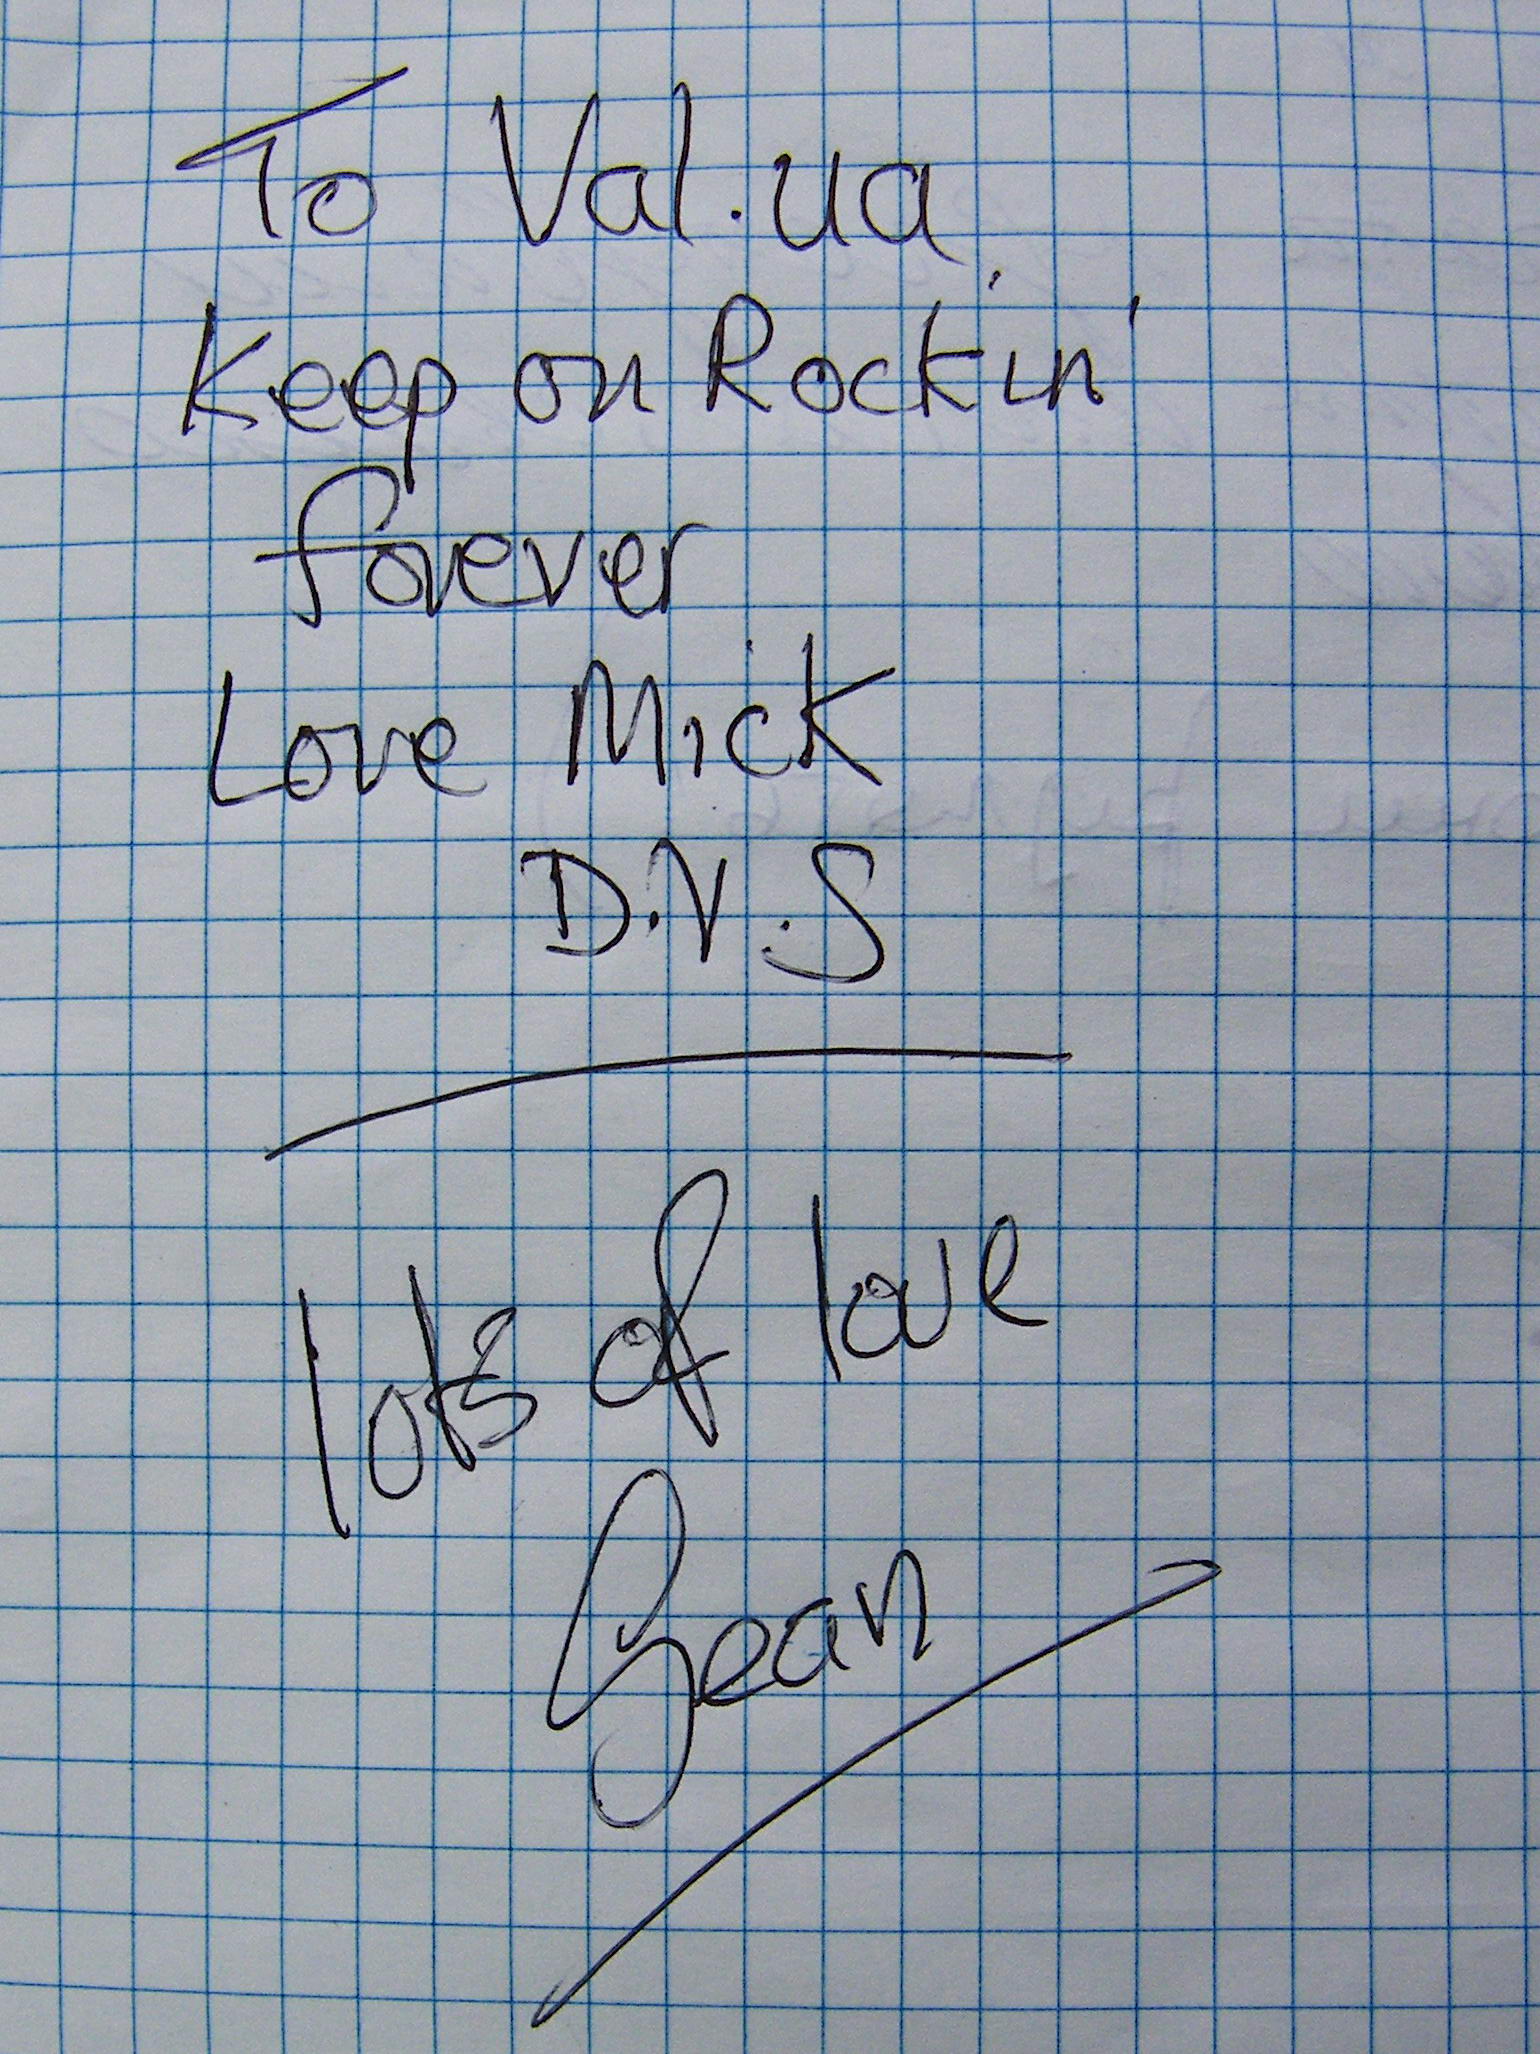 To Val.ua
Keep on Rockin'
forever
Love Mick
D.V.S
lots of love
Sean